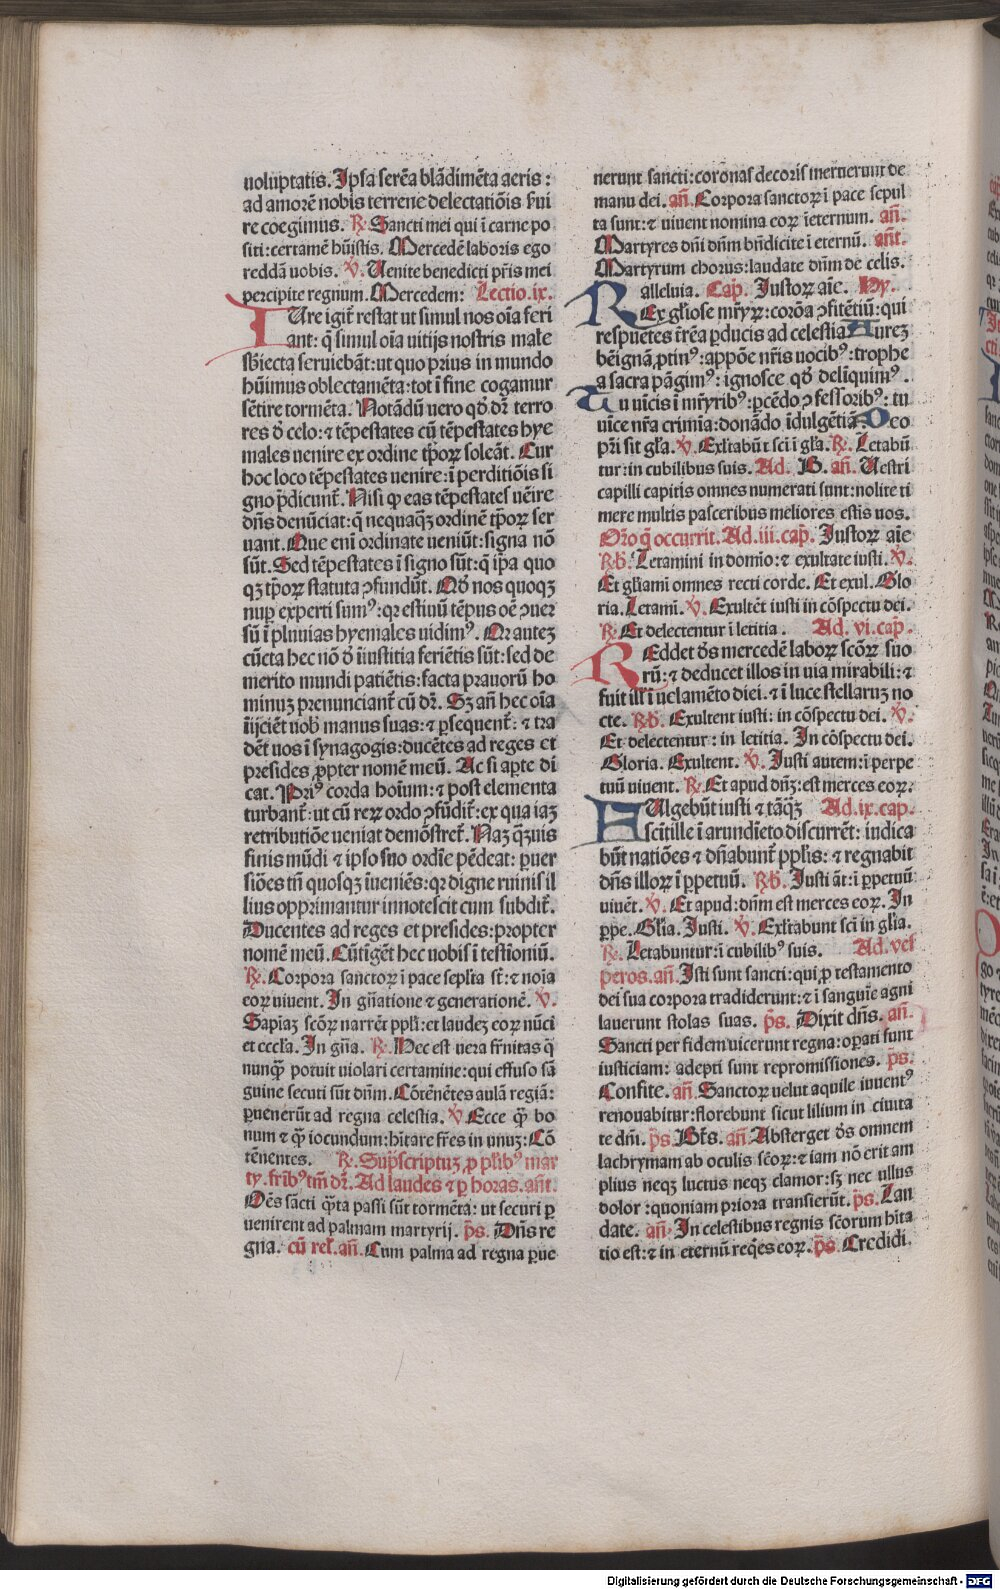 uoluptatis. Ipsa serēa blādimēta aeris :
ad amorē nobis terrene delectatiōis fui
re coegimus. ℟. Sancti mei qui ī carne po
siti: certamē hūistis. Mercedē laboris ego
reddā uobis. ℣. Uenite benedicti pr̄is mei
percipite regnum. Mercedem: Lectio.ix.
Iure igit᷑ restat ut simul nos oīa feri
ant: q̄ simul oīa uitijs nostris male
sb̄iecta seruiebāt: ut quo prius in mundo
hūimus oblectamēta: tot ī fine cogamur
sētire tormēta. Notādū uero qd̓ dr̄ terro
res d̓ celo: ⁊ tēpestates cū tēpestates hye
males uenire ex ordine tp̄oꝝ soleāt. Cur
hoc loco tēpestates uenire: ī perditiōis si
gno p̄dicunt᷑. Nisi ꝙ eas tēpestates uēire
dn̄s denūciat: q̄ nequaq̄ꝫ ordinē tp̄oꝝ ser
uant. Que enī ordinate ueniūt: signa nō
sūt. Sed tēpestates ī signo sūt: q̄ ip̄a quo
qꝫ tp̄oꝝ statuta ↄfundūt. Qd̓ nos quoqꝫ
nuꝑ experti sumꝰ: qꝛ estiuū tēpus oē ↄuer
sū ī pluuias hyemales uidimꝰ. Qꝛ autez
cūcta hec nō d̓ iīustitia feriētis sūt: sed de
merito mundi patiētis: facta prauorū ho
minuꝫ prenunciant᷑ cū dr̄. Sꝫ an̄ hec oīa
iījciēt uob̄ manus suas: ⁊ ꝑsequent᷑: ⁊ tra
dēt uos ī synagogis: ducētes ad reges et
presides ꝓpter nomē meū. Ac si aꝑte di
cat. Priꝰ corda hoīum: ⁊ post elementa
turbant᷑: ut cū reꝝ ordo ↄfūdit᷑: ex qua iaꝫ
retributiōe ueniat demōstret᷑. Naꝫ q̄ꝫuis
finis mūdi ⁊ ipso suo ordīe pēdeat: ꝑuer
siōes tn̄ quosqꝫ īueniēs: qꝛ digne ruinis il
lius opprimantur innotescit cum subdit᷑.
Ducentes ad reges et presides: propter
nomē meū. Cūtiget᷑ hec nobis ī testīoniū.
℟. Corpora sanctoꝝ ī pace sepl̄ta st̄: ⁊ noīa
eoꝝ uiuent. In gn̄atione ⁊ generationē. ℣.
Sapīaꝫ scōꝝ narrēt ppl̄i: et laudeꝫ eoꝝ nūci
et eccl̄a. In gn̄a. ℟. Hec est uera fr̄nitas q̄
nunq̄ꝫ potuit uiolari certamine: qui effuso sā
guine secuti sūt dn̄m. Cōtēnētes aulā regiā:
ꝑuenerūt ad regna celestia. ℣ Ecce q̄ꝫ bo
num ⁊ q̄ꝫ iocundum: hītare fr̄es in unuꝫ: Cō
tēnentes. ℟. Sup̄scriptuꝫ ꝓ pl̄ibꝰ mar
ty. fr̄ibꝰ tm̄ dr̄. Ad laudes ⁊ ꝑ horas. an̄t.
Oēs sāc̄ti q̄ta passi sūt tormēta: ut securi ꝑ
uenirent ad palmam martyrij. p̄s. Dn̄s re
gna. cū rel̓. an̄. Cum palma ad regna ꝑue
nerunt sancti: coronas decoris meruerunt de
manu dei. an̄. Corpora sanctoꝝ ī pace sepul
ta sunt: ⁊ uiuent nomina eoꝝ īeternum. an̄.
Martyres dn̄i dn̄m bn̄dicite ī eternū. an̄t.
Martyrum chorus: laudate dn̄m de celis.
alleluia. Cap̄. Iustoꝝ aīe. Hy.
Rex gl̄iose mr̄yꝝ: corōa ↄfitētiū: qui
respuētes tr̄rēa ꝑducis ad celestia Aureꝫ
bēignā ꝓtinꝰ: appōe nr̄is uocibꝰ: trophe
a sacra pāgimꝰ: ignosce qd̓ deliquimꝰ.
Tu uīcis ī mr̄yribꝰ: ꝑcēdo ↄfessoribꝰ: tu
uīce nr̄a crimīa: donādo īdulgētiā. Deo
pr̄i sit gl̄a. ℣. Exl̄tabūt sc̄i ī gl̄a. ℟. Letabū
tur: in cubilibus suis. Ad. B. an̄. Uestri
capilli capitis omnes numerati sunt: nolite ti
mere multis passeribus meliores estis uos.
Or̄o q̄ occurrit. Ad.iii.cap̄. Iustoꝝ aīe
℟b̄. Letamini in domīo: ⁊ exultate iusti. ℣.
Et gl̄iamī omnes recti corde. Et exul. Glo
ria. Letamī. ℣. Exultēt iusti in cōspectu dei.
℟. Et delectentur ī letitia . Ad. vi.cap̄.
Reddet d̓s mercedē laboꝝ scōꝝ suo
rū: ⁊ deducet illos in uia mirabili: ⁊
fuit ill̓ ī uelamēto diei. ⁊ ī luce stellaruꝫ no
cte. ℟b̄. Exultent iusti: in cōspectu dei. ℣.
Et delectentur: in letitia. In cōspectu dei.
Gloria. Exultent. ℣. Iusti autem: ī perpe
tuū uiuent. ℟. Et apud dn̄ꝫ: est merces eoꝝ.
Fulgebūt iusti ⁊ tāq̄ꝫ Ad.ix.cap.
scītille ī arundīeto discurrēt: indica
būt natiōes ⁊ dn̄abunt᷑ ppl̄is: ⁊ regnabit
dn̄s illoꝝ ī ꝑpetuū. ℟b̄. Iusti āt: ī ꝑpetuū
uiuēt. ℣. Et apud: dn̄m est merces eoꝝ. In
ꝑpe. Gl̄ia. Iusti. ℣. Exl̄tabunt sc̄i in gl̄ia.
℟. Letabuntur: ī cubilibꝰ suis. Ad. ves
peros. an̄. Isti sunt sancti: qui ꝓ testamento
dei sua corpora tradiderunt: ⁊ ī sanguīe agni
lauerunt stolas suas. p̄s. Dixit dn̄s. an̄.
Sancti per fidem uicerunt regna: oꝑati sunt
iusticiam: adepti sunt repromissiones. p̄s.
Confite. an̄. Sanctoꝝ uelut aquile iuuentꝰ
renouabitur: florebunt sicut lilium in ciuita
te dn̄i. p̄s. Bt̄s. an̄. Absterget d̓s omnem
lachrymam ab oculis sc̄oꝝ: ⁊ iam nō erit am
plius neqꝫ luctus neqꝫ clamor: sꝫ nec ullus
dolor: quoniam priora transierūt. p̄s. Lau
date. an̄. In celestibus regnis sc̄orum hīta
tio est: ⁊ in eternū reqes eoꝝ. p̄s. Credidi.
Digitalisierung gefördert durch die Deutsche Forschungsgemeinschaft - DFG